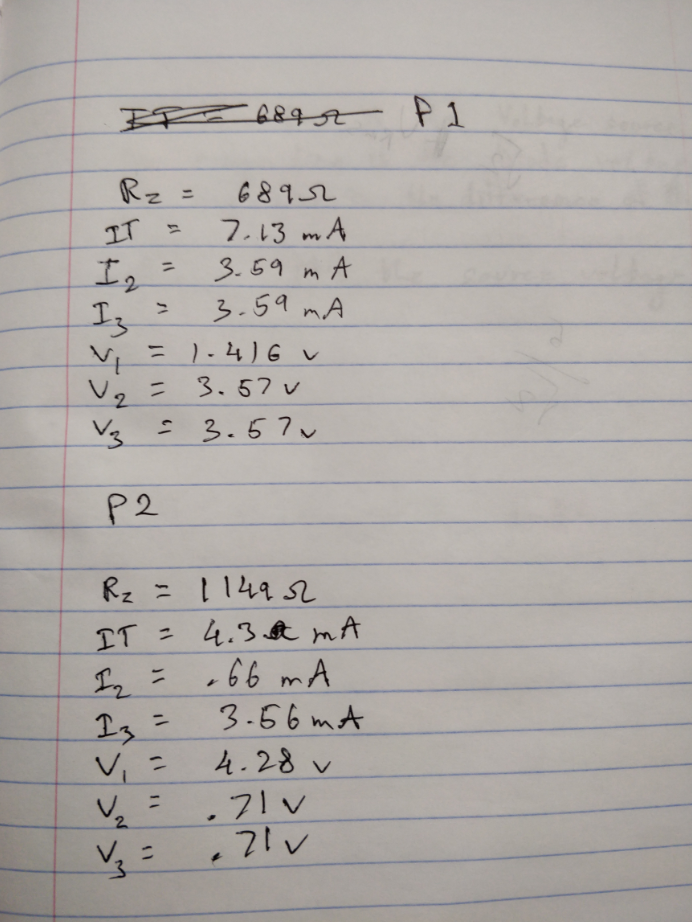 P1
Rz = 689Ω
IT = 7.13 mA
I2 = 3.59 mA
I3 = 3.59 mA
V1 = 1.416 v
V2 = 3.57 v
V3 = 3.57 v
P2
Rz = 1149 Ω
IT = 4.3 mA
I2 = .66 mA
I3 = 3.56 mA
V1 = 4.28 v
V2 = .71 v
V3 = .71 v